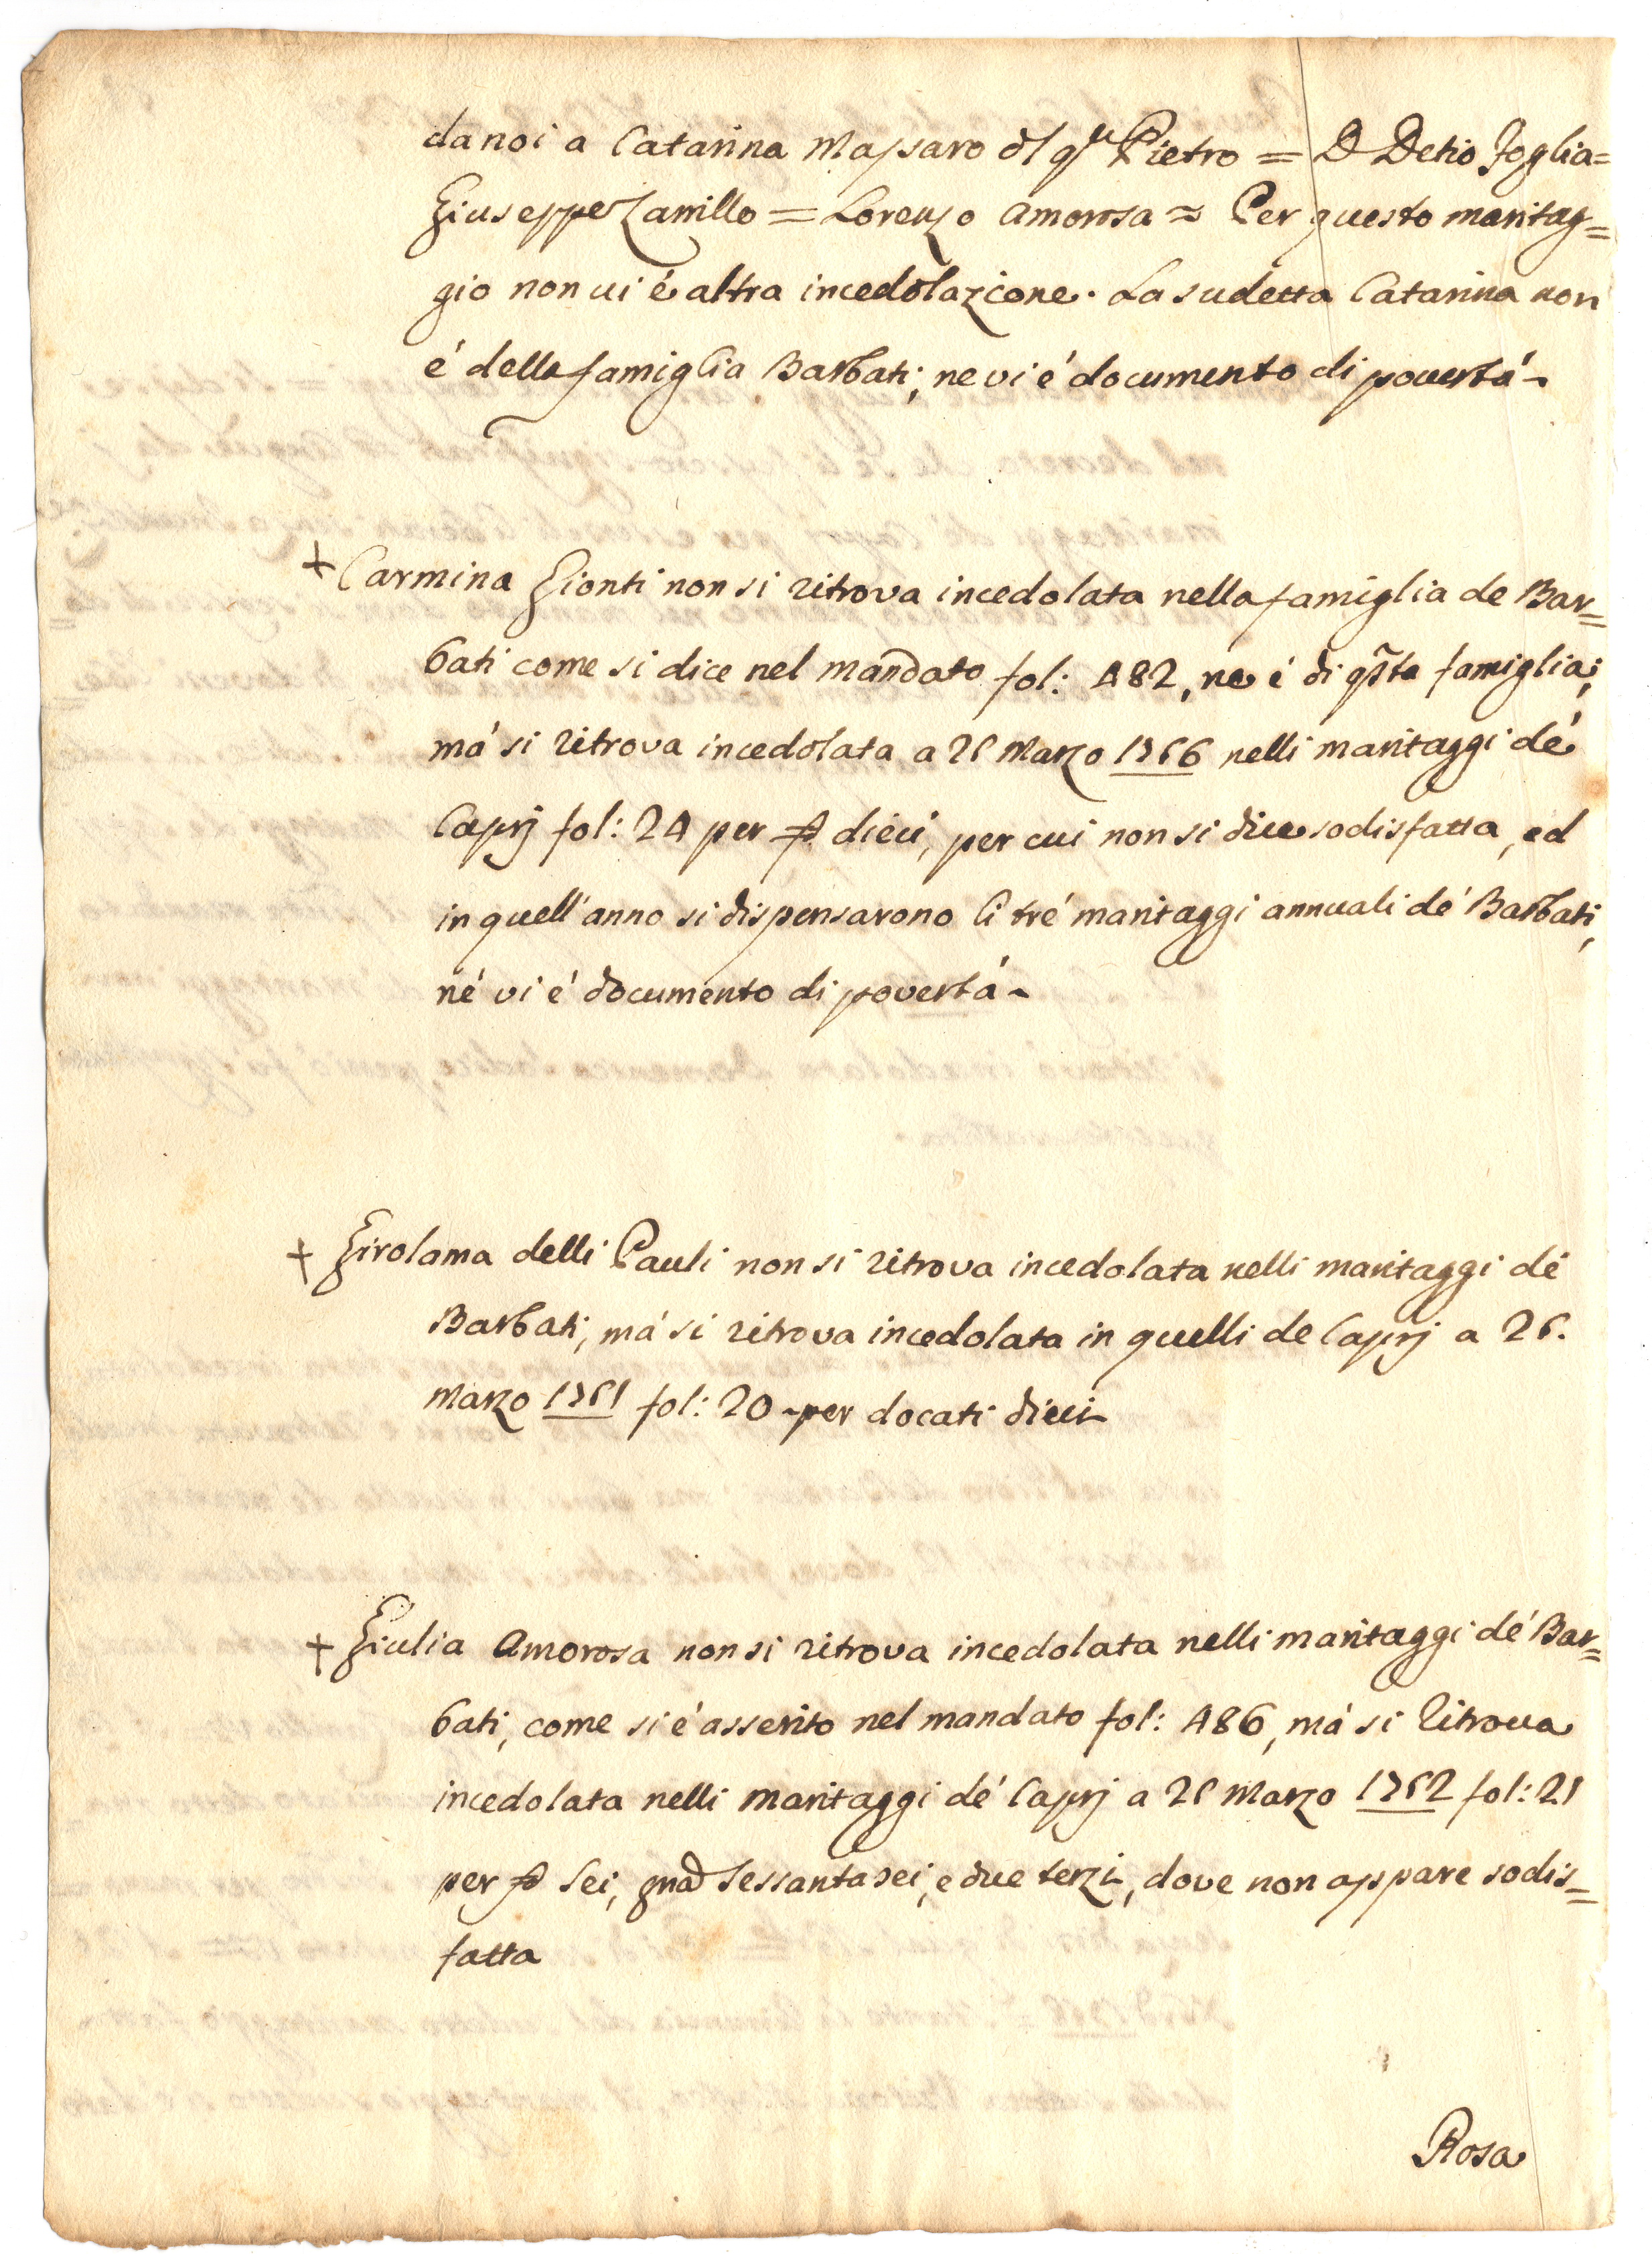 da noi a Catarina Massaro dl qm Pietro = D Detio Foglia=
Giuseppe Zarrillo = Lorenzo Amorosa = Per questo maritag=
gio non vi é altra incedolazione. La sudetta Catarina non
é della famiglia Barbati, ne vi é documento di povertá
+ Carmina Gionti non si ritrova incedolata nella famiglia de Bar=
bati come si dice nel mandato fol: 482, ne é di qsta famiglia;
má si ritrova incedolata a 25 Marzo 1766 nelli maritaggi dé
Caprj fol: 24 per dieci, per cui non si dice sodisfatta, ed
in quell'anno si dispensarono li tré maritaggi annuali dé Barbati,
né vi é documento di povertá
+ Girolama delli Pauli non si ritrova incedolata nelli maritaggi dé
Barbati, má si ritrova incedolata in quelli de Caprj a 25.
Marzo 1761 fol: 20 per docati dieci
+ Giulia Amorosa non si ritrova incedolata nelli maritaggi dé Bar=
bati, come si é asserito nel mandato fol: 486, má si ritrova
incedolata nelli maritaggi dé Caprj a 25 Marzo 1762 fol: 21
per sei, gna sessantasei, e due terzi, dove non appare sodis=
fatta
Rosa